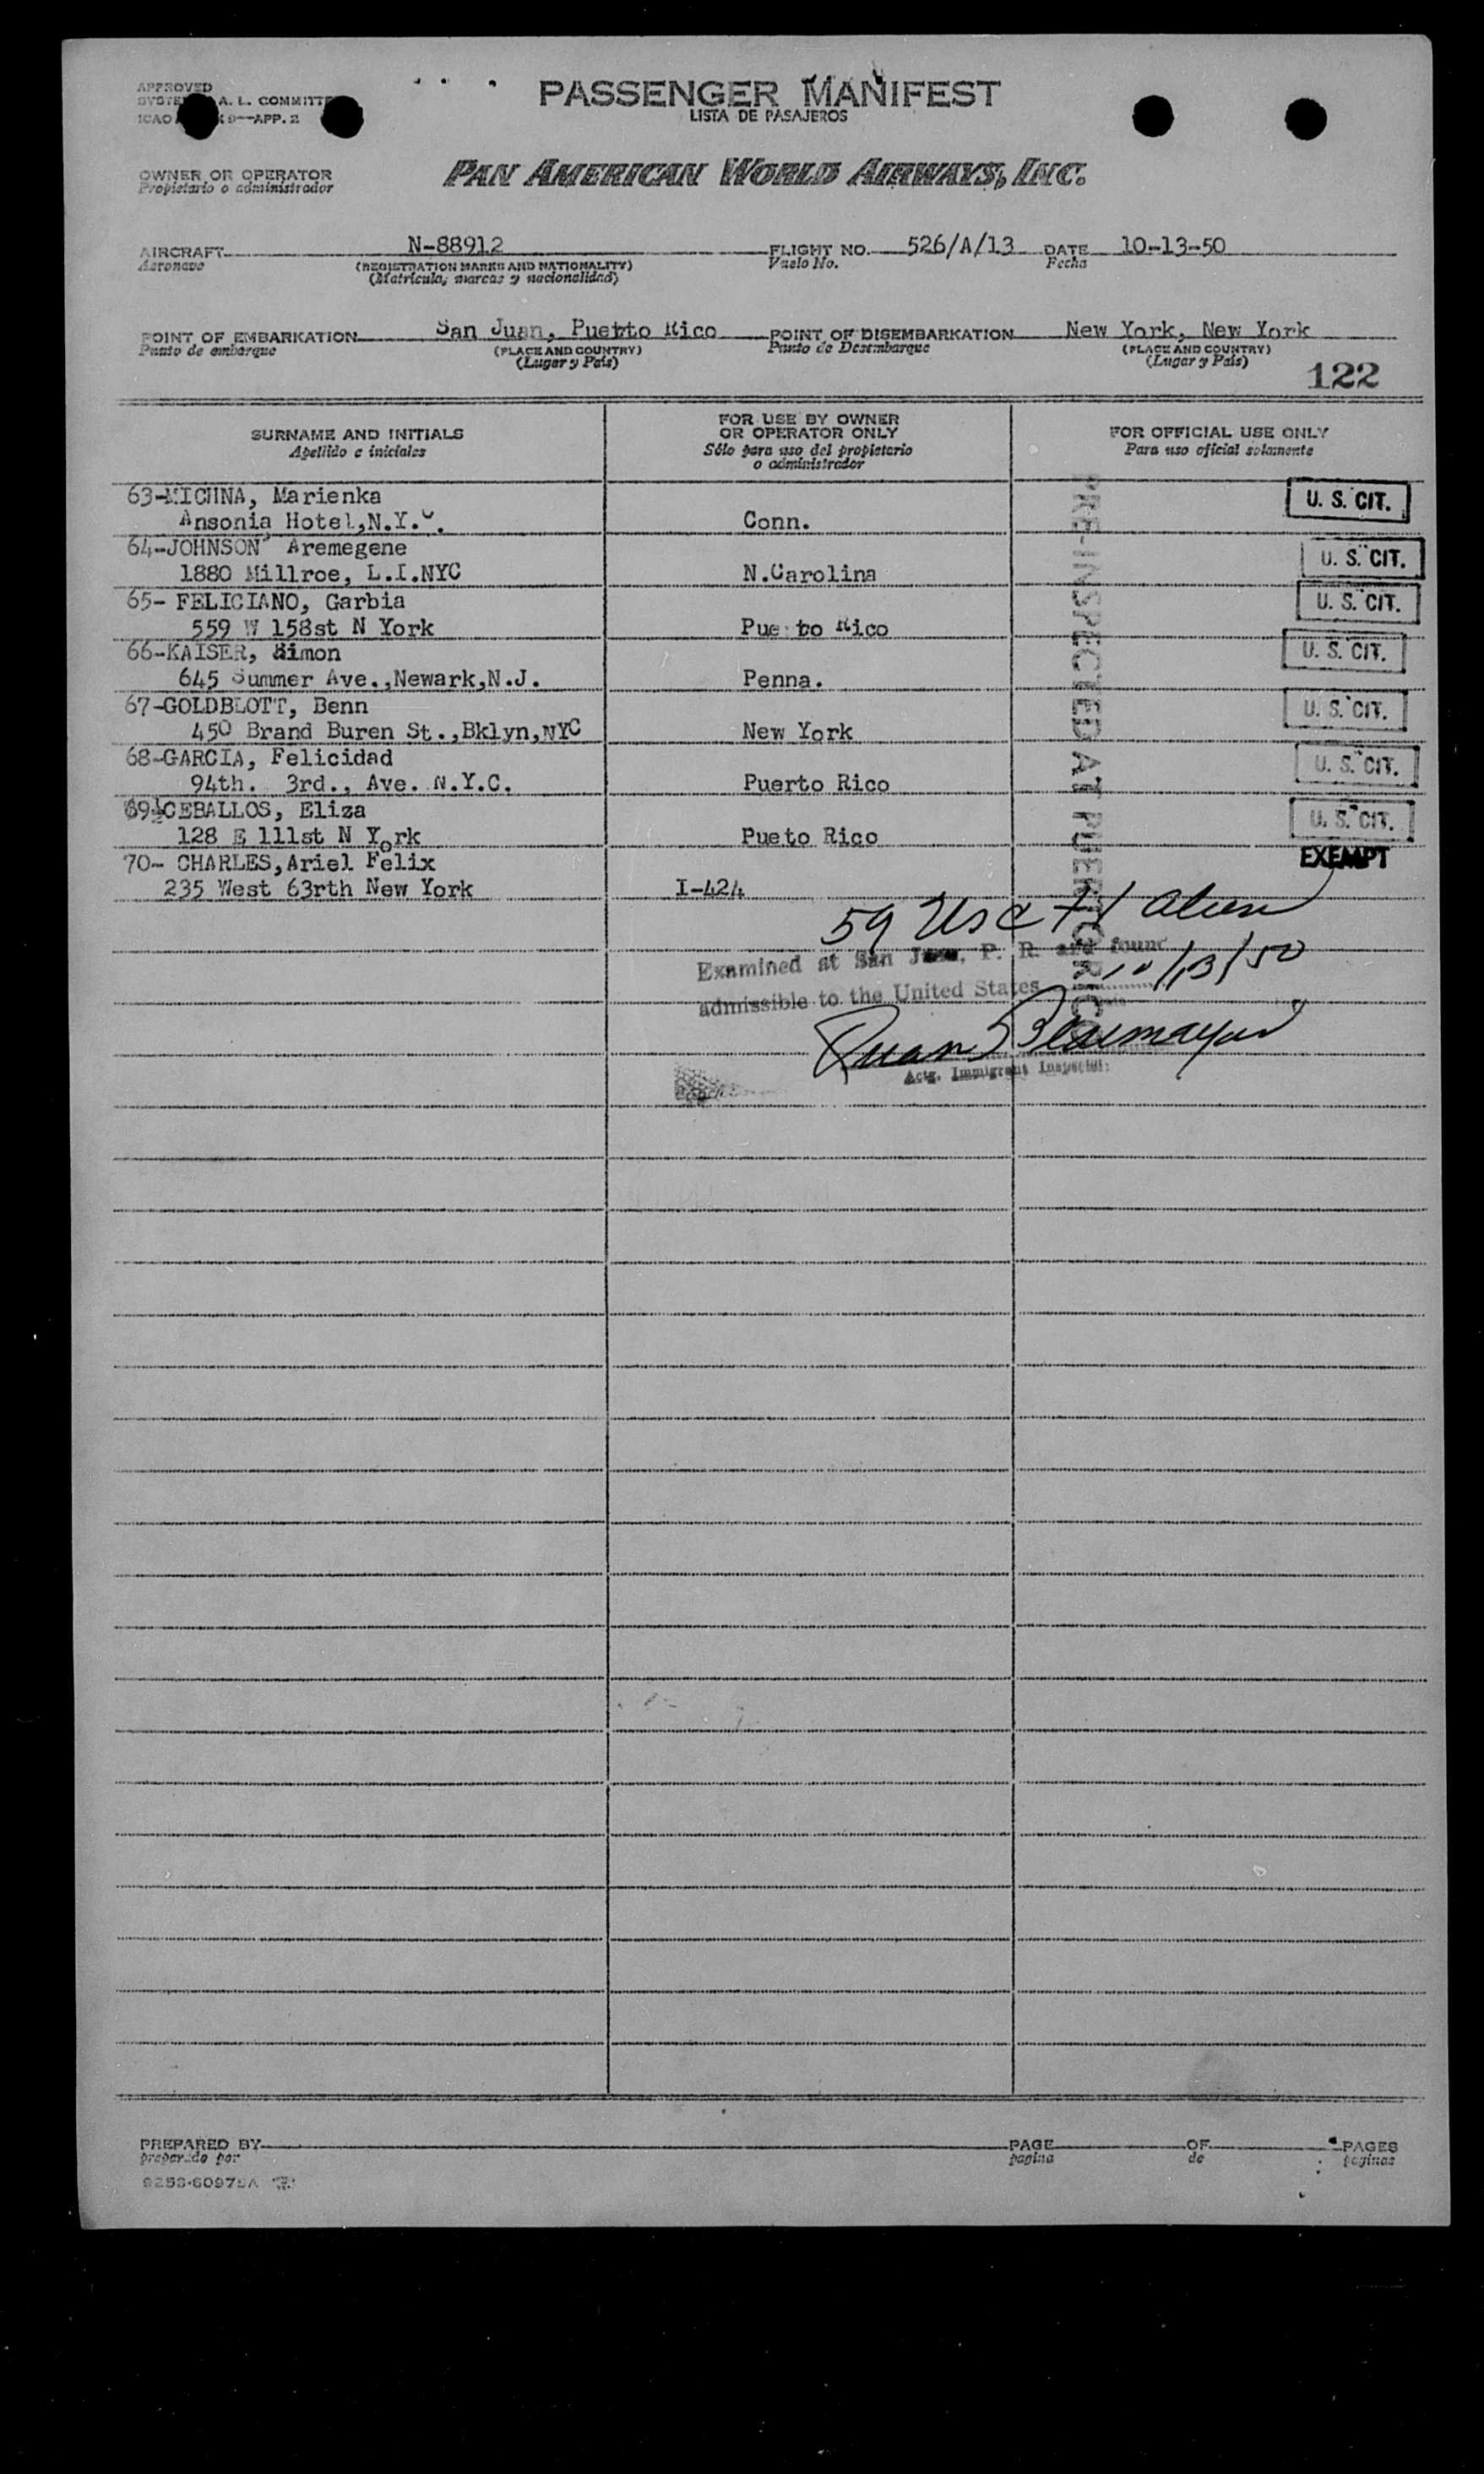 APPROVED
A. L. COMMITTE
ICAO 9—APP. 2
PASSENGER MANIFEST
LISTA DE PASAJEROS
OWNER OR OPERATOR
Propietario o administrador
PAN AMERICAN WORLD AIRWAYS, INC.
AIRCRAFT N-88912 FLIGHT NO. 526/A/13 DATE 10-13-50
Aeronave (REGISTRATION MARKS AND NATIONALITY) Vuelo No. Fecha
(Matricula, marcas y nacionalidad)
POINT OF EMBARKATION San Juan, Puerto Rico POINT OF DISEMBARKATION New York, New York
Punto de embarque (PLACE AND COUNTRY) Punto de Desembarque (PLACE AND COUNTRY)
(Lugar y País) (Lugar y País)
122
SURNAME AND INITIALS FOR USE BY OWNER OR OPERATOR ONLY FOR OFFICIAL USE ONLY
Apellido e iniciales Sólo para uso del propietario o administrador Para uso oficial solamente
PRE-INSPECTED AT PUERTO RICO
63-MICHNA, Marienka U. S. CIT.
Ansonia Hotel,N.Y.C. Conn.
64-JOHNSON, Aremegene U. S. CIT.
1880 Millroe, L.I.NYC N.Carolina
65- FELICIANO, Garbia U. S. CIT.
559 W 158st N York Puerto Rico
66-KAISER, Simon U. S. CIT.
645 Summer Ave.,Newark,N.J. Penna.
67-GOLDBLOTT, Benn U. S. CIT.
450 Brand Buren St.,Bklyn,NYC New York
68-GARCIA, Felicidad U. S. CIT.
94th. 3rd., Ave. N.Y.C. Puerto Rico
69-CEBALLOS, Eliza U. S. CIT.
128 E 111st N York Pueto Rico
70- CHARLES,Ariel Felix EXEMPT
235 West 63rth New York I-424
59 Usc + 1 alien
Examined at San Juan, P. R. and found
admissible to the United States 10/13/50
Juan
Actg. Immigrant Inspector
PREPARED BY PAGE OF PAGES
preparado por pagina de paginas